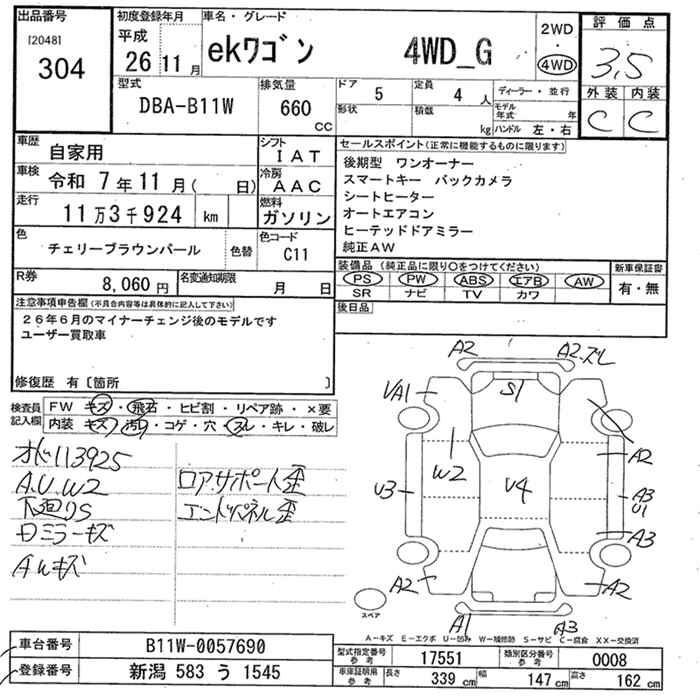 出品番号
[2048]
304
初度登録年月
平成
26年11月
車名・グレード
ekワゴン 4WD_G
2WD
4WD
評価点
3.5
外装 内装
C C
型式
DBA-B11W
排気量
660 CC
ドア 5
形状
定員 4 人
積載 kg
ディーラー・並行
モデル年式 年
ハンドル 左・右
車歴 自家用
シフト IAT
車検 令和 7年11月( 日)
冷房 AAC
走行 11万3千924 km
燃料 ガソリン
色 チェリーブラウンパール
色替
色コード C11
R券 8,060円
名変通知期限 月 日
セールスポイント(正常に機能するものに限ります)
後期型 ワンオーナー
スマートキー バックカメラ
シートヒーター
オートエアコン
ヒーテッドドアミラー
純正AW
装備品(純正品に限り○をつけてください)
PS PW ABS エアB AW
SR ナビ TV カワ
新車保証書
有・無
後日品
注意事項申告欄(不具合内容等は具体的に記入して下さい)
26年6月のマイナーチェンジ後のモデルです
ユーザー買取車
修復歴 有〔箇所 〕
検査員記入欄
FW キズ・飛石・ヒビ割・リペア跡・×要
内装 キズ・汚れ・コゲ・穴・スレ・キレ・破レ
オド113925
A.U.W2
下廻りS
Dミラーキズ
AWキズ
ロアサポート歪
エンドパネル歪
A2
A2.ズレ
S1
VA1
W2
A2
U3
V4
A3
U1
A3
A2
A2
A1
A3
スペア
A-キズ E-エクボ U-凹み W-補修跡 S-サビ C-腐食 XX-交換済
車台番号 B11W-0057690
登録番号 新潟 583 う 1545
型式指定番号 参考 17551
類別区分番号 参考 0008
車庫証明用 参考 長さ 339 cm 幅 147 cm 高さ 162 cm